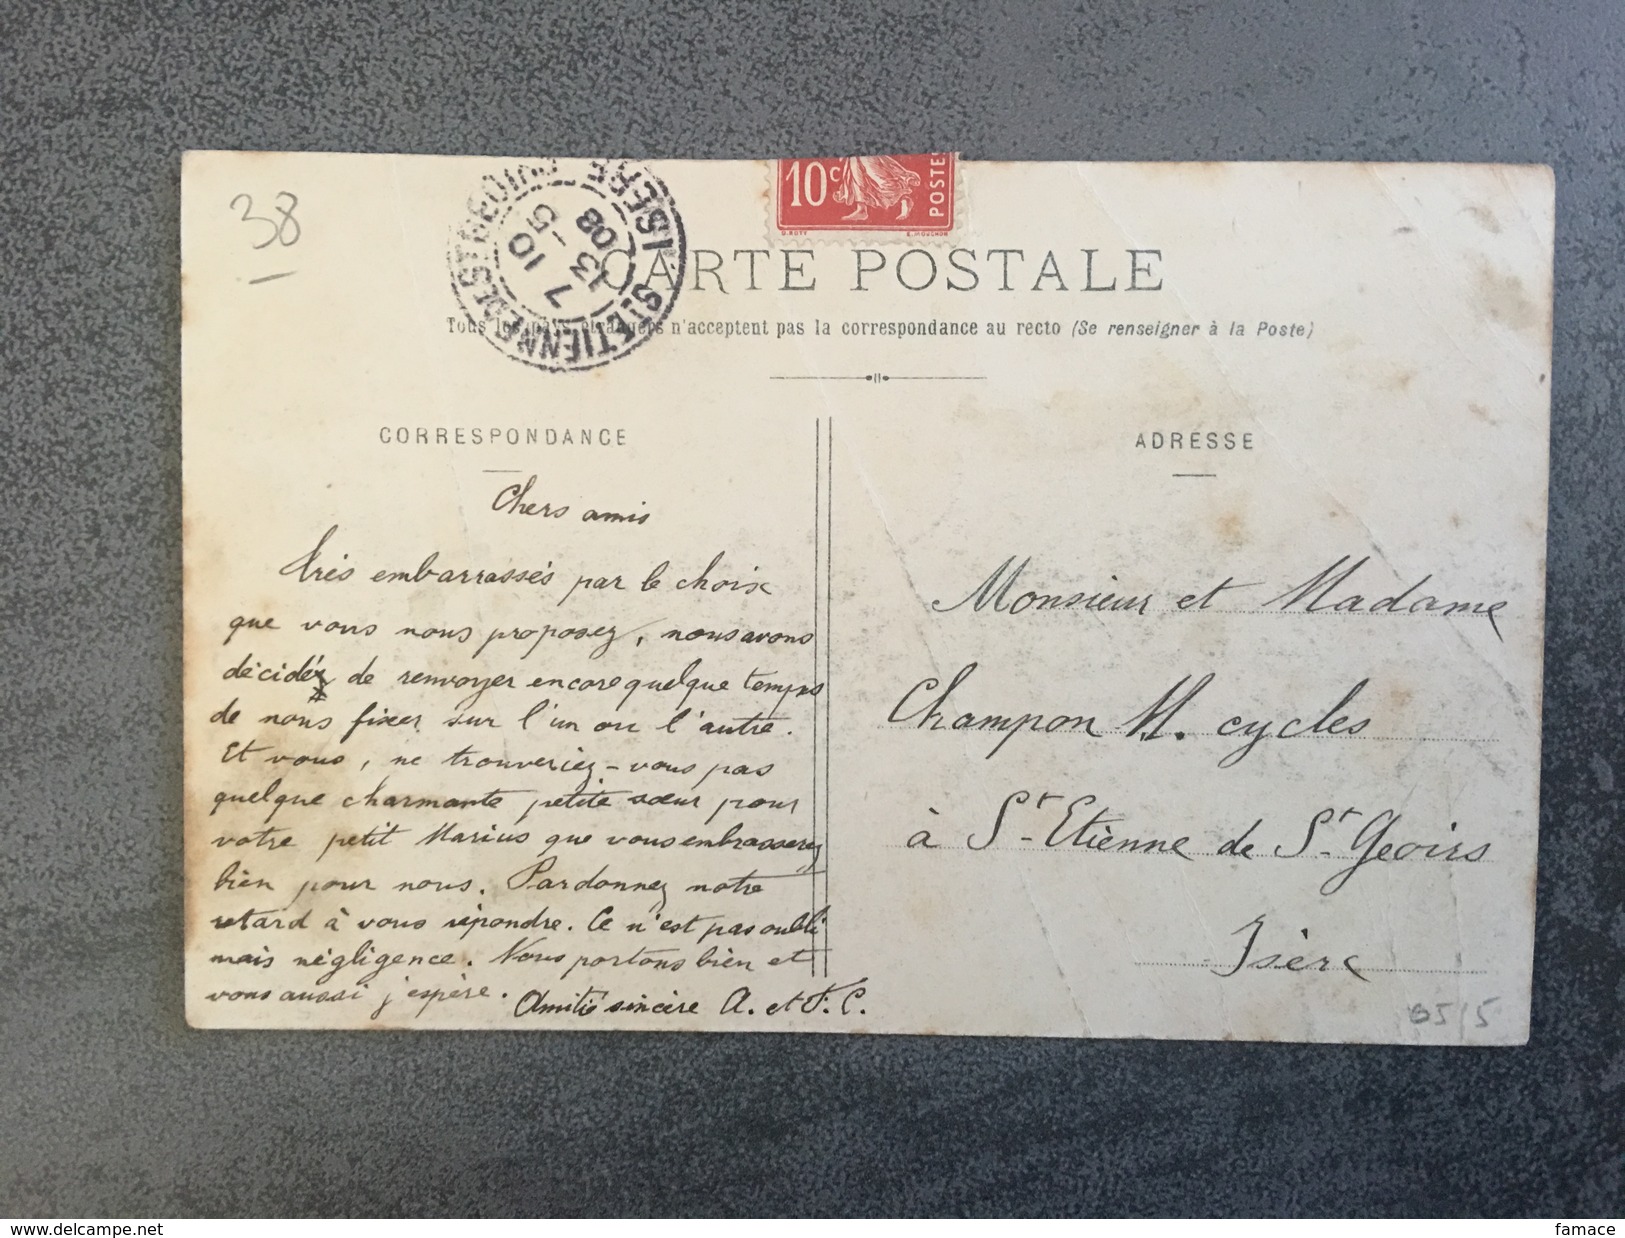 38
10c
POSTES
O. ROTY
E. MOUCHON
ST ETIENNE DE ST GEOIRS
ISERE
7 10
13 -5
08
CARTE POSTALE
Tous les pays étrangers n'acceptent pas la correspondance au recto (Se renseigner à la Poste)
CORRESPONDANCE
Chers amis
Très embarrassés par le choix
que vous nous proposez, nous avons
décidé de renvoyer encore quelque temps
de nous fixer sur l'un ou l'autre.
Et vous, ne trouveriez-vous pas
quelque charmante petite sœur pour
votre petit Marius que vous embrasserez
bien pour nous. Pardonnez notre
retard à vous répondre. Ce n'est pas oubli
mais négligence. Nous portons bien et
vous aussi j'espère. Amitié sincère A. et F. C.
ADRESSE
Monsieur et Madame
Champon M. cycles
à St-Etienne de St-Geoirs
Isère
delcampe.net
famace